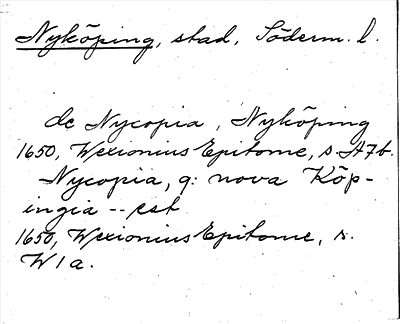 Nyköping, stad, Söderm. l.
de Nycopia, Nyköping
1650, Wexionius Epitome, s. H7b.
Nycopia, q: nova Köp-
ingia -- est
1650, Wexionius Epitome, s.
W1a.